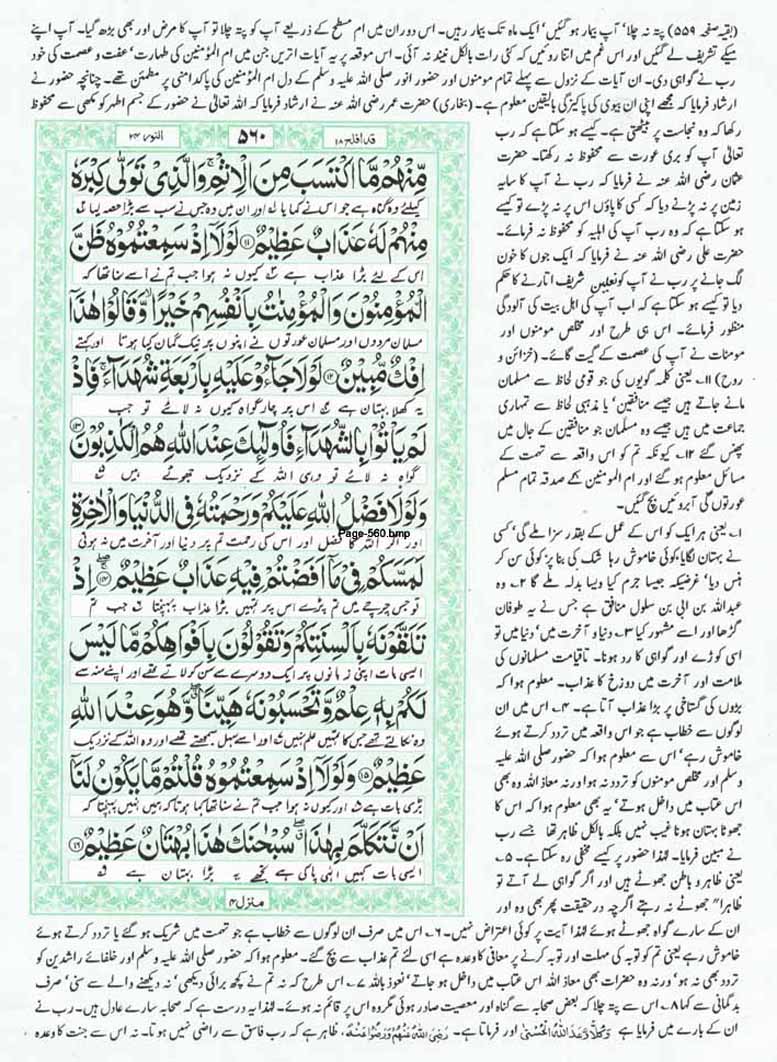 (بقیہ صفحہ ۵۵۹) پتہ نہ چلا' آپ بیمار ہو گئیں' ایک ماہ تک بیمار رہیں۔ اس دوران میں ام مسطح کے ذریعے آپ کو پتہ چلا تو آپ کا مرض اور بھی بڑھ گیا۔ آپ اپنے
میکے تشریف لے گئیں اور اس غم میں اتنا روئیں کہ کئی رات بالکل نیند نہ آئی۔ اس موقعہ پر یہ آیات اتریں جن میں ام المؤمنین کی طہارت' عفت و عصمت کی خود
رب نے گواہی دی۔ ان آیات کے نزول سے پہلے تمام مومنوں اور حضور انور صلی اللہ علیہ وسلم کے دل ام المؤمنین کی پاکدامنی پر مطمئن تھے۔ چنانچہ حضور نے
ارشاد فرمایا کہ مجھے اپنی ان بیوی کی پاکیزگی بالیقین معلوم ہے۔ (بخاری) حضرت عمر رضی اللہ عنہ نے ارشاد فرمایا کہ اللہ تعالٰی نے حضور کے جسم اطہر کو مکھی سے محفوظ
رکھا کہ وہ نجاست پر بیٹھتی ہے۔ کیسے ہو سکتا ہے کہ رب
تعالٰی آپ کو بری عورت سے محفوظ نہ رکھتا۔ حضرت
عثمان رضی اللہ عنہ نے فرمایا کہ رب نے آپ کا سایہ
زمین پر نہ پڑنے دیا کہ کسی کا پاؤں اس پر نہ پڑے تو کیسے
ہو سکتا ہے کہ وہ رب آپ کی اہلیہ کو محفوظ نہ فرمائے۔
حضرت علی رضی اللہ عنہ نے فرمایا کہ ایک جوں کا خون
لگ جانے پر رب نے آپ کو نعلین شریف اتارنے کا حکم
دیا تو کیسے ہو سکتا ہے کہ اب آپ کی اہل بیت کی آلودگی
منظور فرمائے۔ اس ہی طرح اور مخلص مومنوں اور
مومنات نے آپ کی عصمت کے گیت گائے۔ (خزائن و
روح) ۱۱۔ یعنی کلمہ گویوں کی جو قومی لحاظ سے مسلمان
مانے جاتے ہیں جیسے منافقین' یا مذہبی لحاظ سے تمہاری
جماعت میں ہیں جیسے وہ مسلمان جو منافقین کے جال میں
پھنس گئے ۱۲۔ کیونکہ تم کو اس واقعہ سے تہمت کے
مسائل معلوم ہو گئے اور ام المومنین کے صدقہ تمام مسلم
عورتوں کی آبروئیں بچ گئیں۔
۱۔ یعنی ہر ایک کو اس کے عمل کے بقدر سزا ملے گی' کسی
نے بہتان لگایا' کوئی خاموش رہا شک کی بنا پر' کوئی سن کر
ہنس دیا' غرضیکہ جیسا جرم کیا ویسا بدلہ ملے گا ۲۔ وہ
عبداللہ بن ابی بن سلول منافق ہے جس نے یہ طوفان
گڑھا اور اسے مشہور کیا ۳۔ دنیا و آخرت میں' دنیا میں تو
اسی کوڑے اور گواہی کا رد ہونا۔ تاقیامت مسلمانوں کی
ملامت اور آخرت میں دوزخ کا عذاب۔ معلوم ہوا کہ
بڑوں کی گستاخی پر بڑا عذاب آتا ہے۔ ۴۔ اس میں ان
لوگوں سے خطاب ہے جو اس واقعہ میں تردد کرتے ہوئے
خاموش رہے' اس سے معلوم ہوا کہ حضور صلی اللہ علیہ
وسلم اور مخلص مومنوں کو تردد نہ ہوا ورنہ معاذ اللہ وہ بھی
اس عتاب میں داخل ہوتے' یہ بھی معلوم ہوا کہ اس کا
جھوٹا بہتان ہونا غیب نہیں بلکہ بالکل ظاہر تھا جسے رب
نے مبین فرمایا۔ لہٰذا حضور پر کیسے مخفی رہ سکتا ہے۔ ۵۔
یعنی ظاہر و باطن جھوٹے ہیں اور اگر گواہی لے آتے تو
ظاہرا" جھوٹے نہ رہتے اگرچہ در حقیقت پھر بھی وہ اور
قد افلح ۱۸
۵۶۰
النور ۲۴
مِّنْهُم مَّا اكْتَسَبَ مِنَ الْاِثْمِ وَالَّذِیْ تَوَلّٰی كِبْرَهٗ
کیلئے وہ گناہ ہے جو اس نے کمایا اور ان میں وہ جس نے سب سے بڑا حصہ لیا
مِنْهُمْ لَهٗ عَذَابٌ عَظِیْمٌ ۱۱ لَوْلَا اِذْ سَمِعْتُمُوْهُ ظَنَّ
اس کے لئے بڑا عذاب ہے کیوں نہ ہوا جب تم نے اسے سنا تھا کہ
الْمُؤْمِنُوْنَ وَالْمُؤْمِنٰتُ بِاَنْفُسِهِمْ خَیْرًا وَّقَالُوْا هٰذَا
مسلمان مردوں اور مسلمان عورتوں نے اپنوں پر نیک گمان کیا ہوتا اور کہتے
اِفْكٌ مُّبِیْنٌ ۱۲ لَوْلَا جَآءُوْ عَلَیْهِ بِاَرْبَعَةِ شُهَدَآءَ فَاِذْ
یہ کھلا بہتان ہے اس پر چار گواہ کیوں نہ لائے تو جب
لَمْ یَاْتُوْا بِالشُّهَدَآءِ فَاُولٰٓئِكَ عِنْدَ اللّٰهِ هُمُ الْكٰذِبُوْنَ ۱۳
گواہ نہ لائے تو وہی اللہ کے نزدیک جھوٹے ہیں
وَلَوْلَا فَضْلُ اللّٰهِ عَلَیْكُمْ وَرَحْمَتُهٗ فِی الدُّنْیَا وَالْاٰخِرَةِ
اور اگر اللہ کا فضل اور اس کی رحمت تم پر دنیا اور آخرت میں نہ ہوتی
Page-560.bmp
لَمَسَّكُمْ فِیْ مَاۤ اَفَضْتُمْ فِیْهِ عَذَابٌ عَظِیْمٌ ۱۴ اِذْ
تو جس چرچے میں تم پڑے اس پر تمہیں بڑا عذاب پہنچتا جب تم
تَلَقَّوْنَهٗ بِاَلْسِنَتِكُمْ وَتَقُوْلُوْنَ بِاَفْوَاهِكُمْ مَّا لَیْسَ
ایسی بات اپنی زبانوں پر ایک دوسرے سے سن کر لاتے تھے اور اپنے منہ سے
لَكُمْ بِهٖ عِلْمٌ وَّتَحْسَبُوْنَهٗ هَیِّنًا وَّهُوَ عِنْدَ اللّٰهِ
وہ نکالتے تھے جس کا تمہیں علم نہیں اور اسے سہل سمجھتے تھے اور وہ اللہ کے نزدیک
عَظِیْمٌ ۱۵ وَلَوْلَاۤ اِذْ سَمِعْتُمُوْهُ قُلْتُمْ مَّا یَكُوْنُ لَنَاۤ
بڑی بات ہے اور کیوں نہ ہوا جب تم نے سنا تھا کہا ہوتا کہ ہمیں نہیں پہنچتا کہ
اَنْ نَّتَكَلَّمَ بِهٰذَا سُبْحٰنَكَ هٰذَا بُهْتَانٌ عَظِیْمٌ ۱۶
ایسی بات کہیں الٰہی پاکی ہے تجھے یہ بڑا بہتان ہے
منزل ۴
ان کے سارے گواہ جھوٹے ہوئے لہٰذا آیت پر کوئی اعتراض نہیں۔ ۶۔ اس میں صرف ان لوگوں سے خطاب ہے جو تہمت میں شریک ہو گئے یا تردد کرتے ہوئے
خاموش رہے یعنی تم کو توبہ کی مہلت اور توبہ کرنے پر معافی کا وعدہ ہے اسی لئے تم عذاب سے بچ گئے۔ معلوم ہوا کہ حضور صلی اللہ علیہ وسلم اور خلفائے راشدین کو
تردد بھی نہ ہو' ورنہ وہ حضرات بھی معاذ اللہ اس عتاب میں داخل ہو جاتے' نعوذ باللہ ۷۔ اس طرح کہ نہ تم نے کچھ برائی دیکھی' نہ دیکھنے والے سے سنی' صرف
بدگمانی سے کہا ۸۔ اس سے پتہ چلا کہ بعض صحابہ سے گناہ اور معصیت صادر ہوئی مگر وہ اس پر قائم نہ ہوئے۔ لہٰذا یہ درست ہے کہ صحابہ سارے عادل ہیں۔ رب نے
ان کے بارے میں فرمایا ہے وَكُلًّا وَّعَدَ اللّٰهُ الْحُسْنٰی اور فرماتا ہے۔ رَضِیَ اللّٰهُ عَنْهُمْ وَرَضُوْا عَنْهُ، ظاہر ہے کہ رب فاسق سے راضی نہیں ہوتا۔ نہ اس سے جنت کا وعدہ